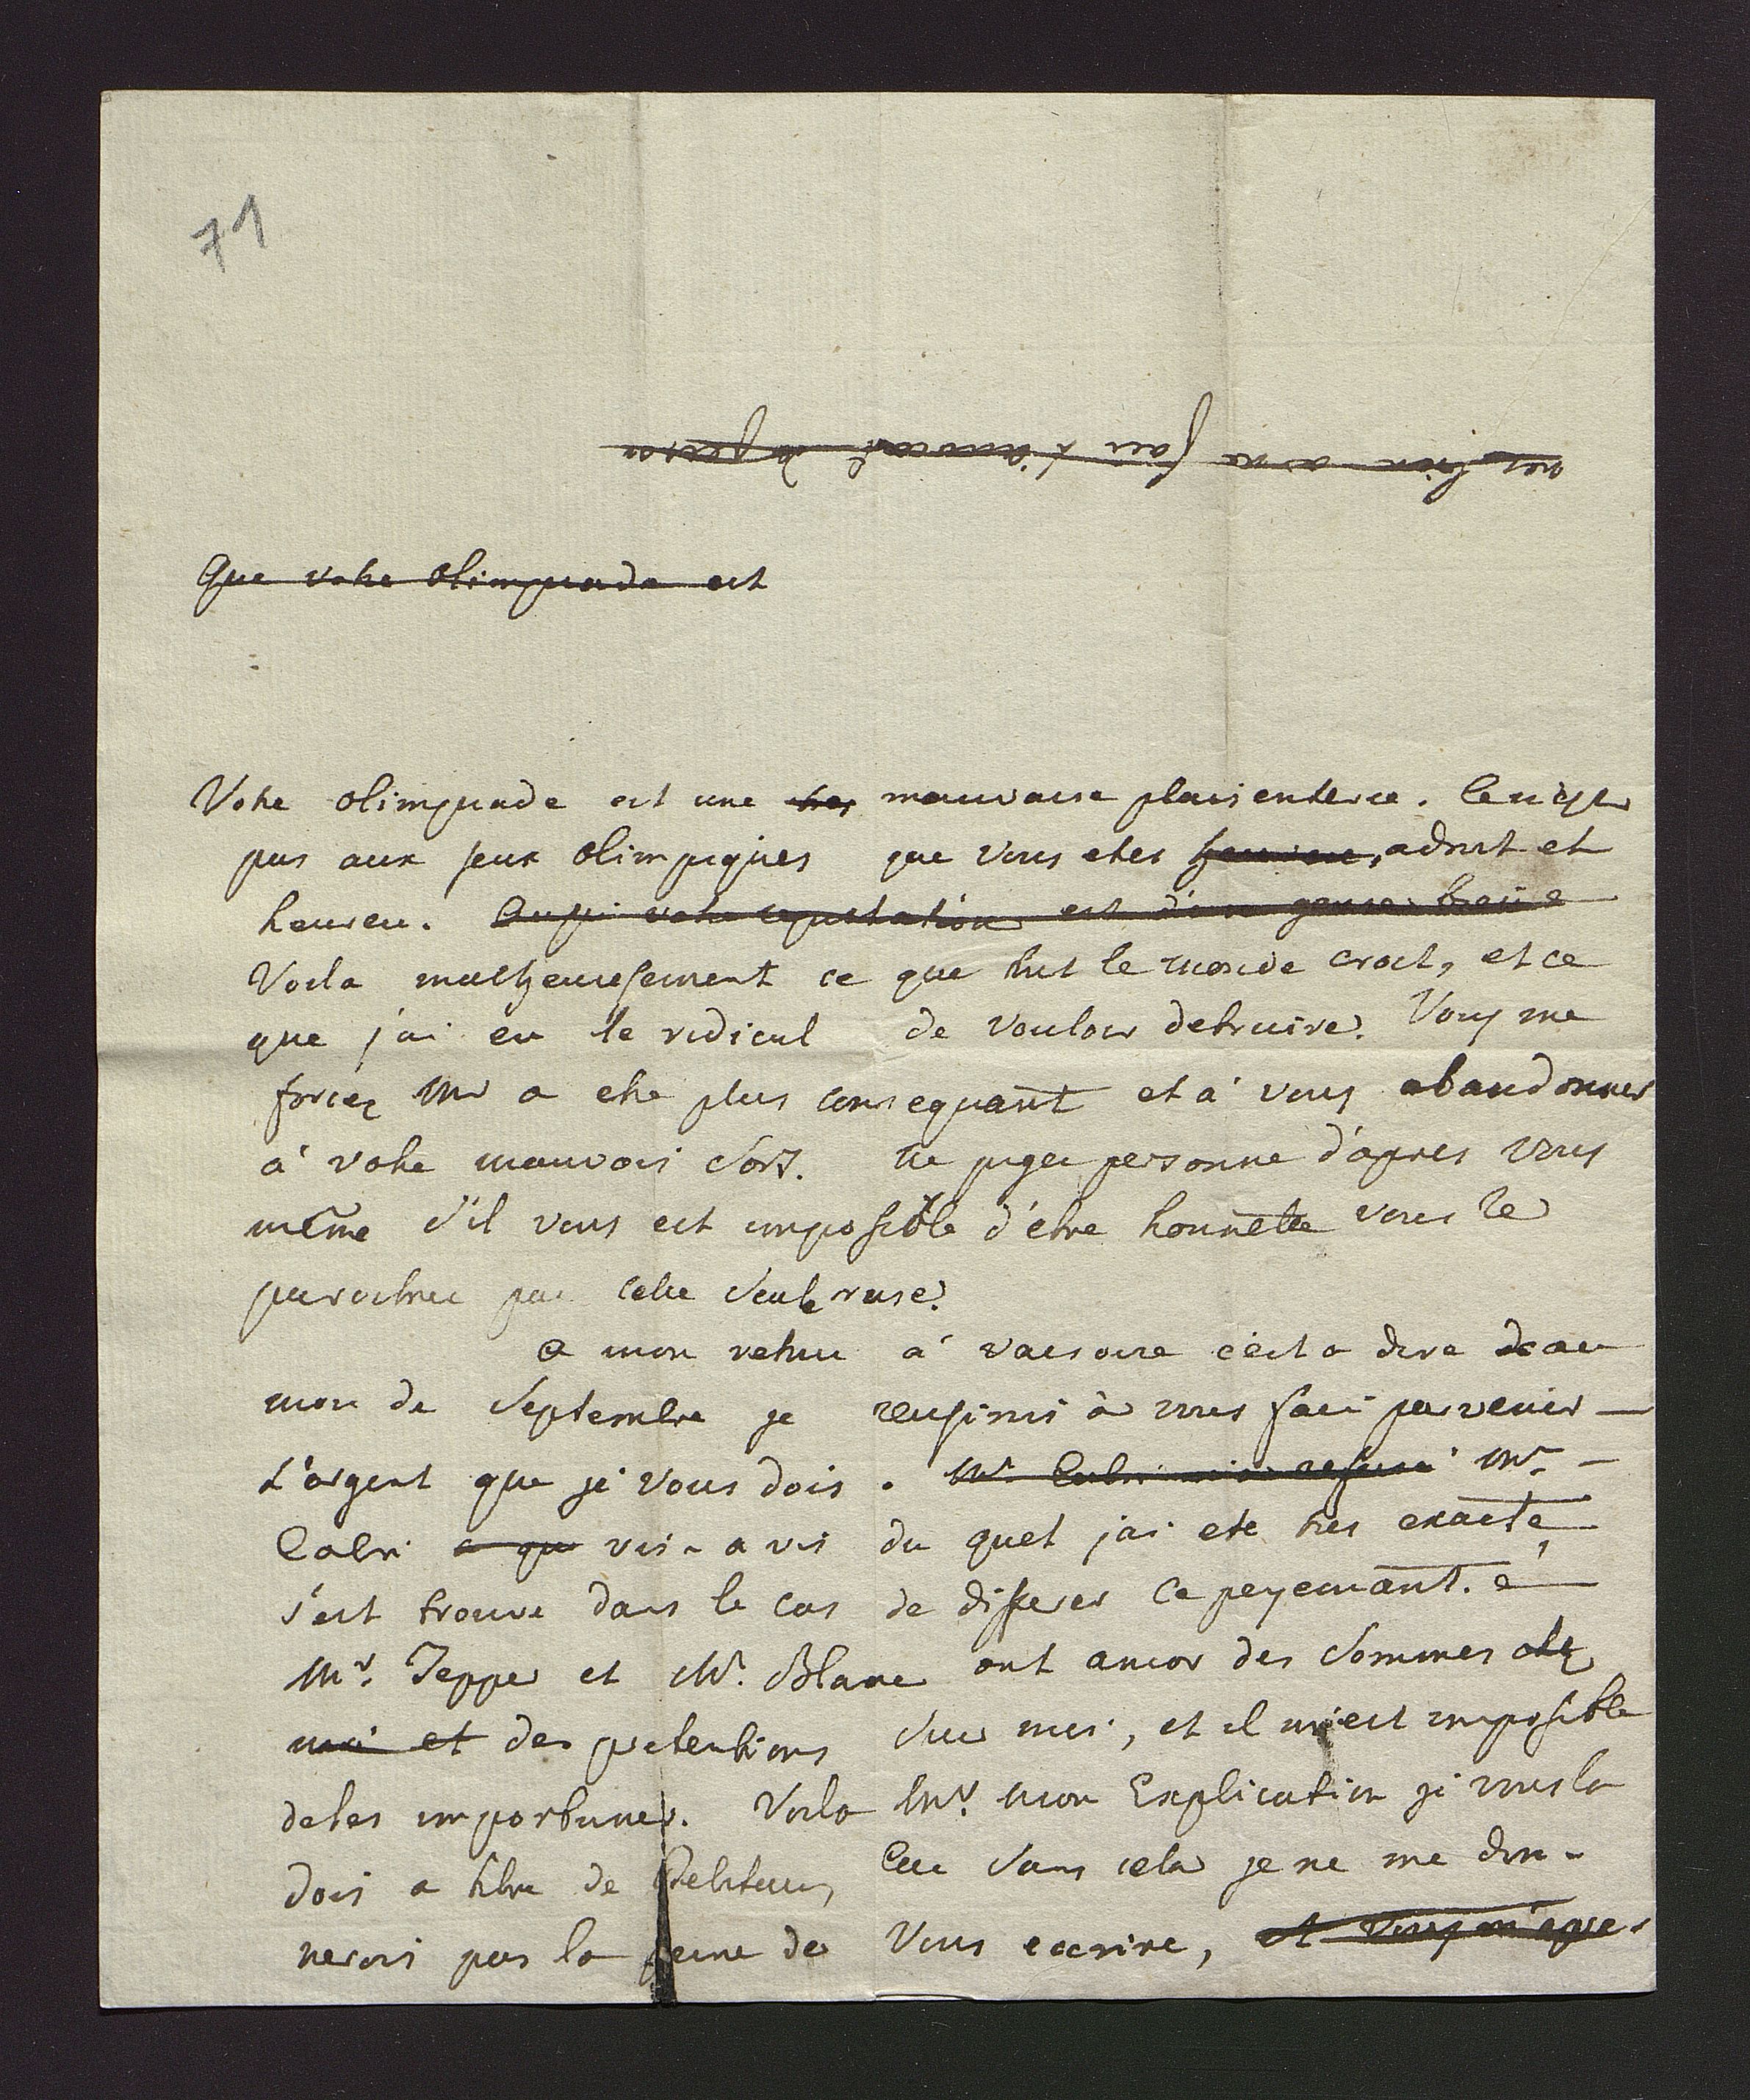 71
Que votre olimpiade est
Votre olimpiade est une tres mauvaise plaisenterie. Ce n'est
pas aux jeux olimpiques que vous etes heureux, adroit et
heureu. Aussi votre reputation est d'un genre
Voila malheureusement ce que tut le monde croit, et ce
que j'ai eu le ridicul de vouloir detruire. Vous me
forcez Mr a etre plus consequant et à vous abandonner
à votre mauvais sort. Ne jugez personne d'apres vous
même s'il vous est impossible d'etre honnette vous le
paroitrez par cette seule ruse.
a mon retour à varsovie c'est a dire de au
mois de Septembre je reussirais à vous faire parvenir
l'argent que je vous dois. Mr Cabri refusé Mr.
Cabri a qu vis-a vis du quel j'ai ete tres exacte
s'est trouve dans le cas de differer ce peyemant. é
Mr. Tepper et Mr. Blanc ont ancor des sommes chez
moi et des pretentions sur moi, et il m'est impossible
de les importuner. Voila Mr. mon Explication je vous la
dois a titre de Debiteur, Car sans cela je ne me don-
nerois pas la peine de Vous eccrire, et vous